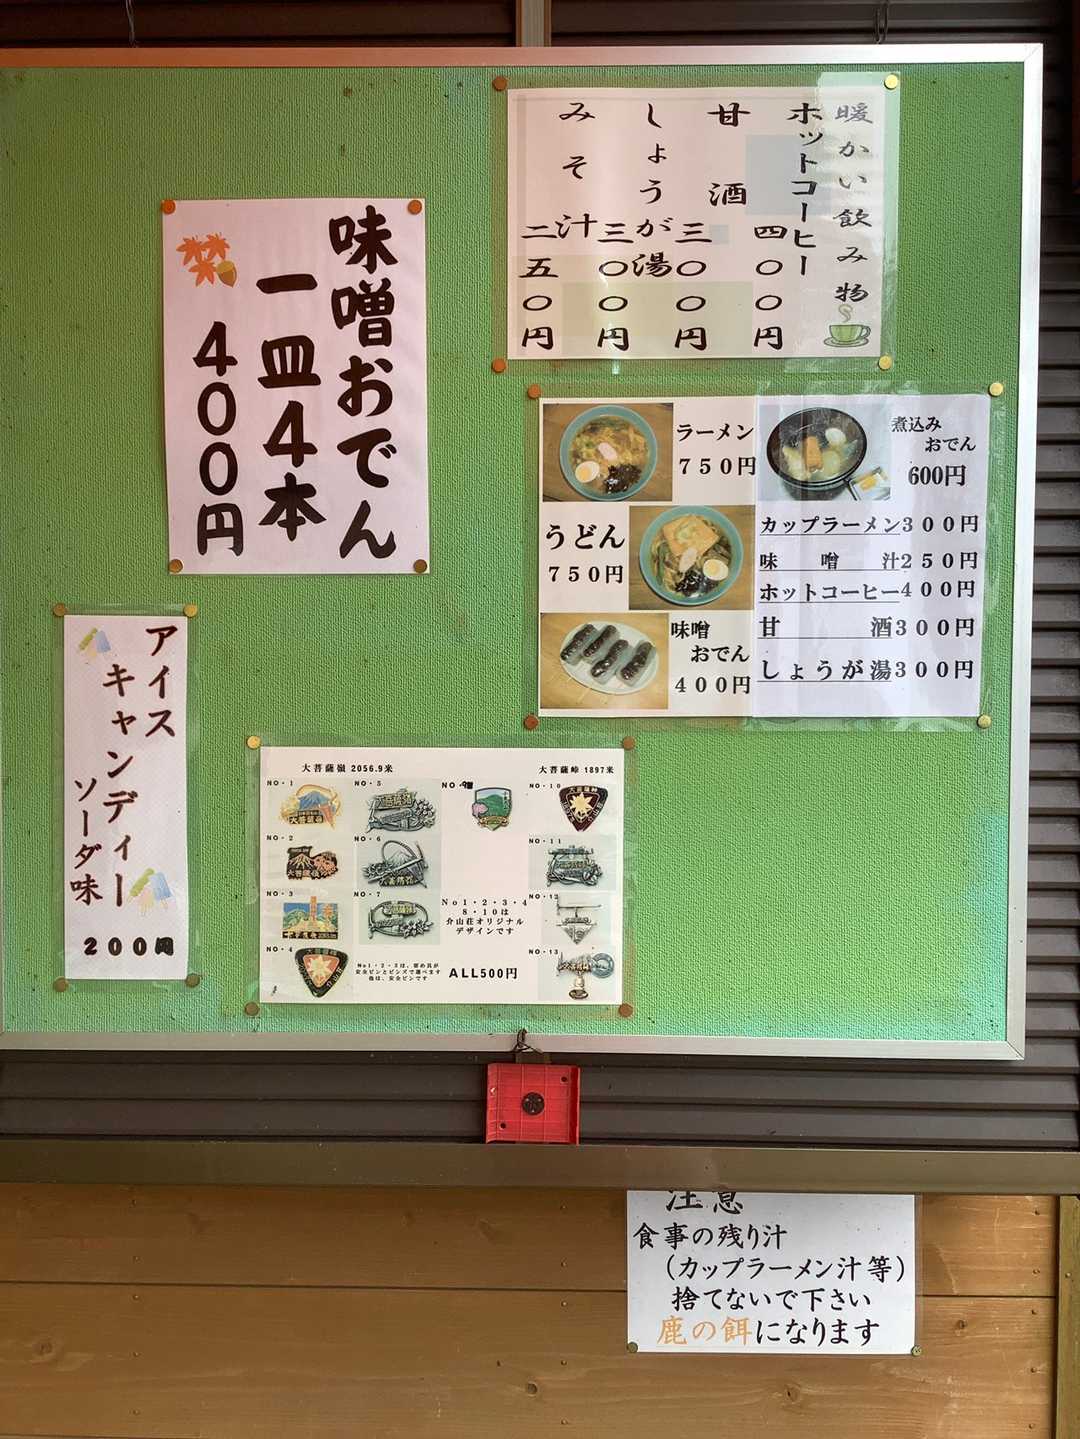 暖かい飲み物
ホットコーヒー
四〇〇円
甘酒
三〇〇円
しょうが湯
三〇〇円
みそ汁
二五〇円
味噌おでん
一皿4本
400円
ラーメン
750円
うどん
750円
味噌
おでん
400円
煮込み
おでん
600円
カップラーメン300円
味噌汁250円
ホットコーヒー400円
甘酒300円
しょうが湯300円
アイス
キャンディー
ソーダ味
200円
大菩薩嶺 2056.9米
大菩薩峠 1897米
NO・1
NO・2
NO・3
NO・4
NO・5
NO・6
NO・7
NO・10
NO・11
NO・12
NO・13
No1・2・3・4
8・10は
介山荘オリジナル
デザインです
No1・2・3は、留め具が
安全ピンとピンズで選べます
他は、安全ピンです
ALL500円
注意
食事の残り汁
（カップラーメン汁等）
捨てないで下さい
鹿の餌になります